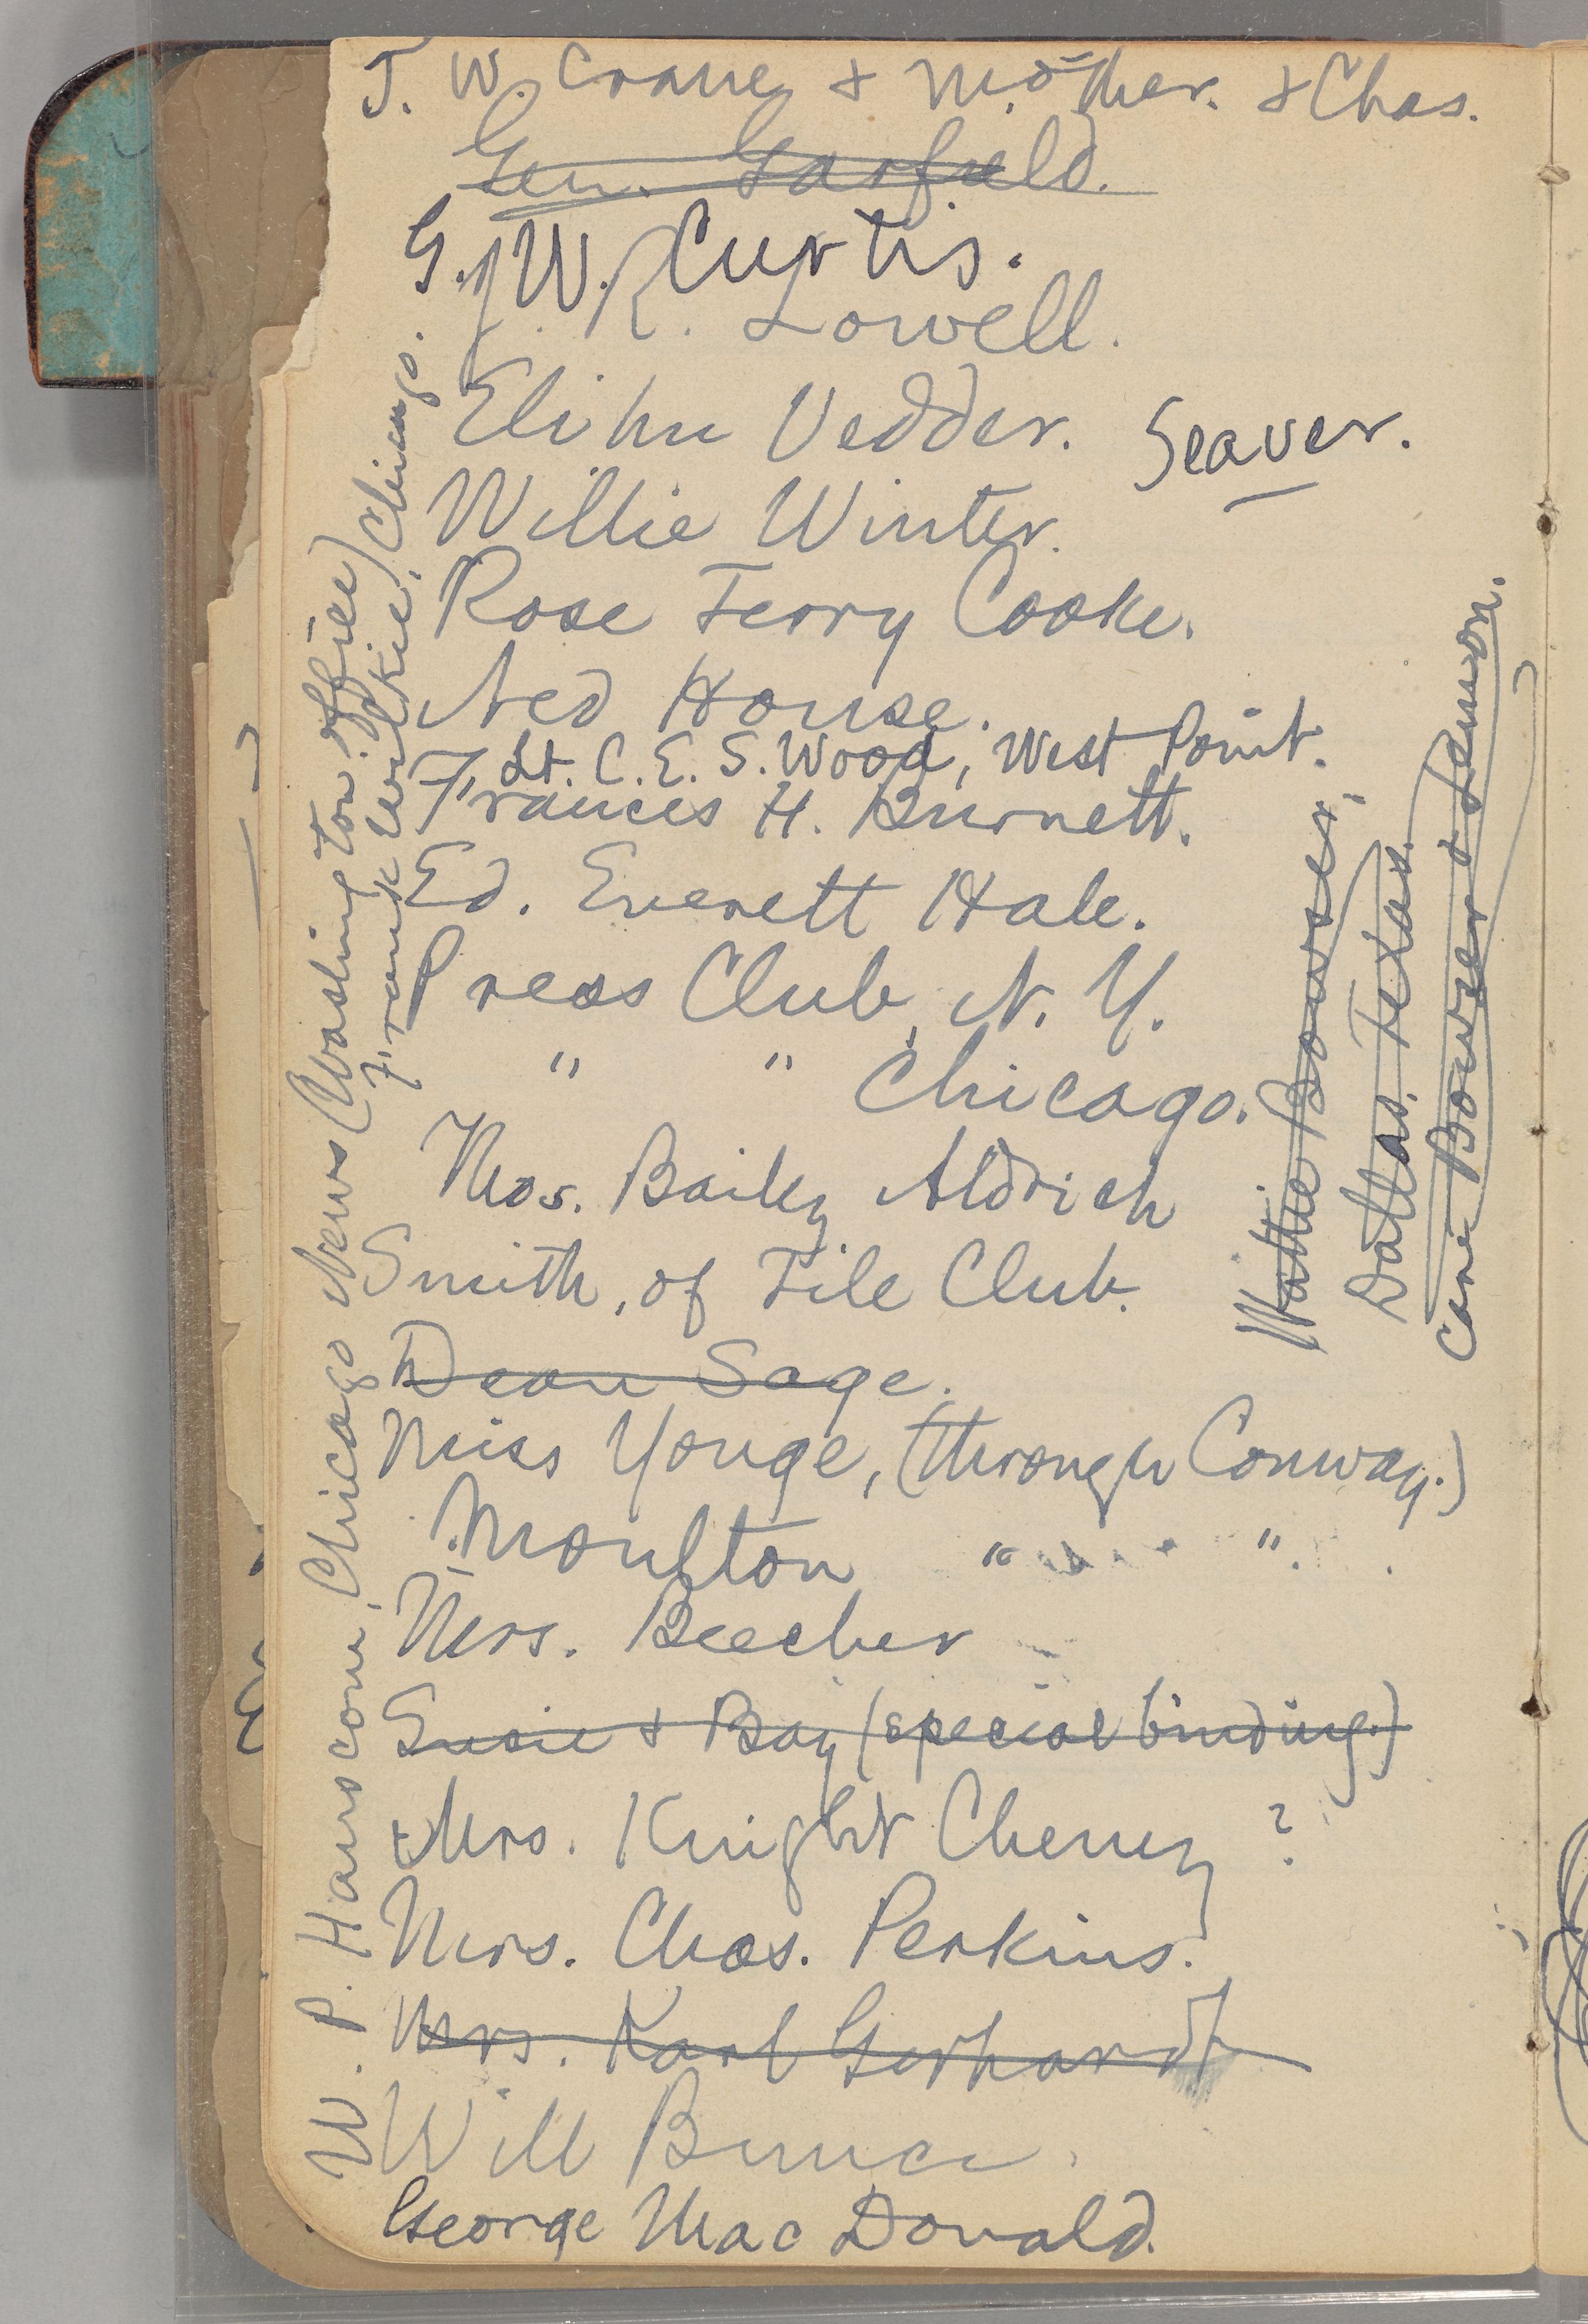 T. W. Crane & Mother. & Chas.
Gen. Garfield.
G. W. Curtis.
J. R. Lowell.
Elihu Vedder. Seaver.
Willie Winter.
Rose Terry Cooke.
Ned House.
Lt. C. E. S. Wood, West Point.
Frances H. Burnett.
Ed. Everett Hale.
Press Club, N. Y.
" " Chicago.
Thos. Bailey Aldrich
Smith, of Tile Club.
Dean Sage.
Miss Yonge, (through Conway.)
Moulton " ".
Mrs. Beecher
Susie & Bay (special binding.)
Mrs. Knight Cheney ?
Mrs. Chas. Perkins.
Mrs. Karl Gerhardt
Will Bunce.
George MacDonald.
W. P. Hanscom, Chicago News (Washington office)
Frank Wilkie, Chicago.
Hattie Bowser,
Dallas, Texas.
Care Bowser & Lemmon.